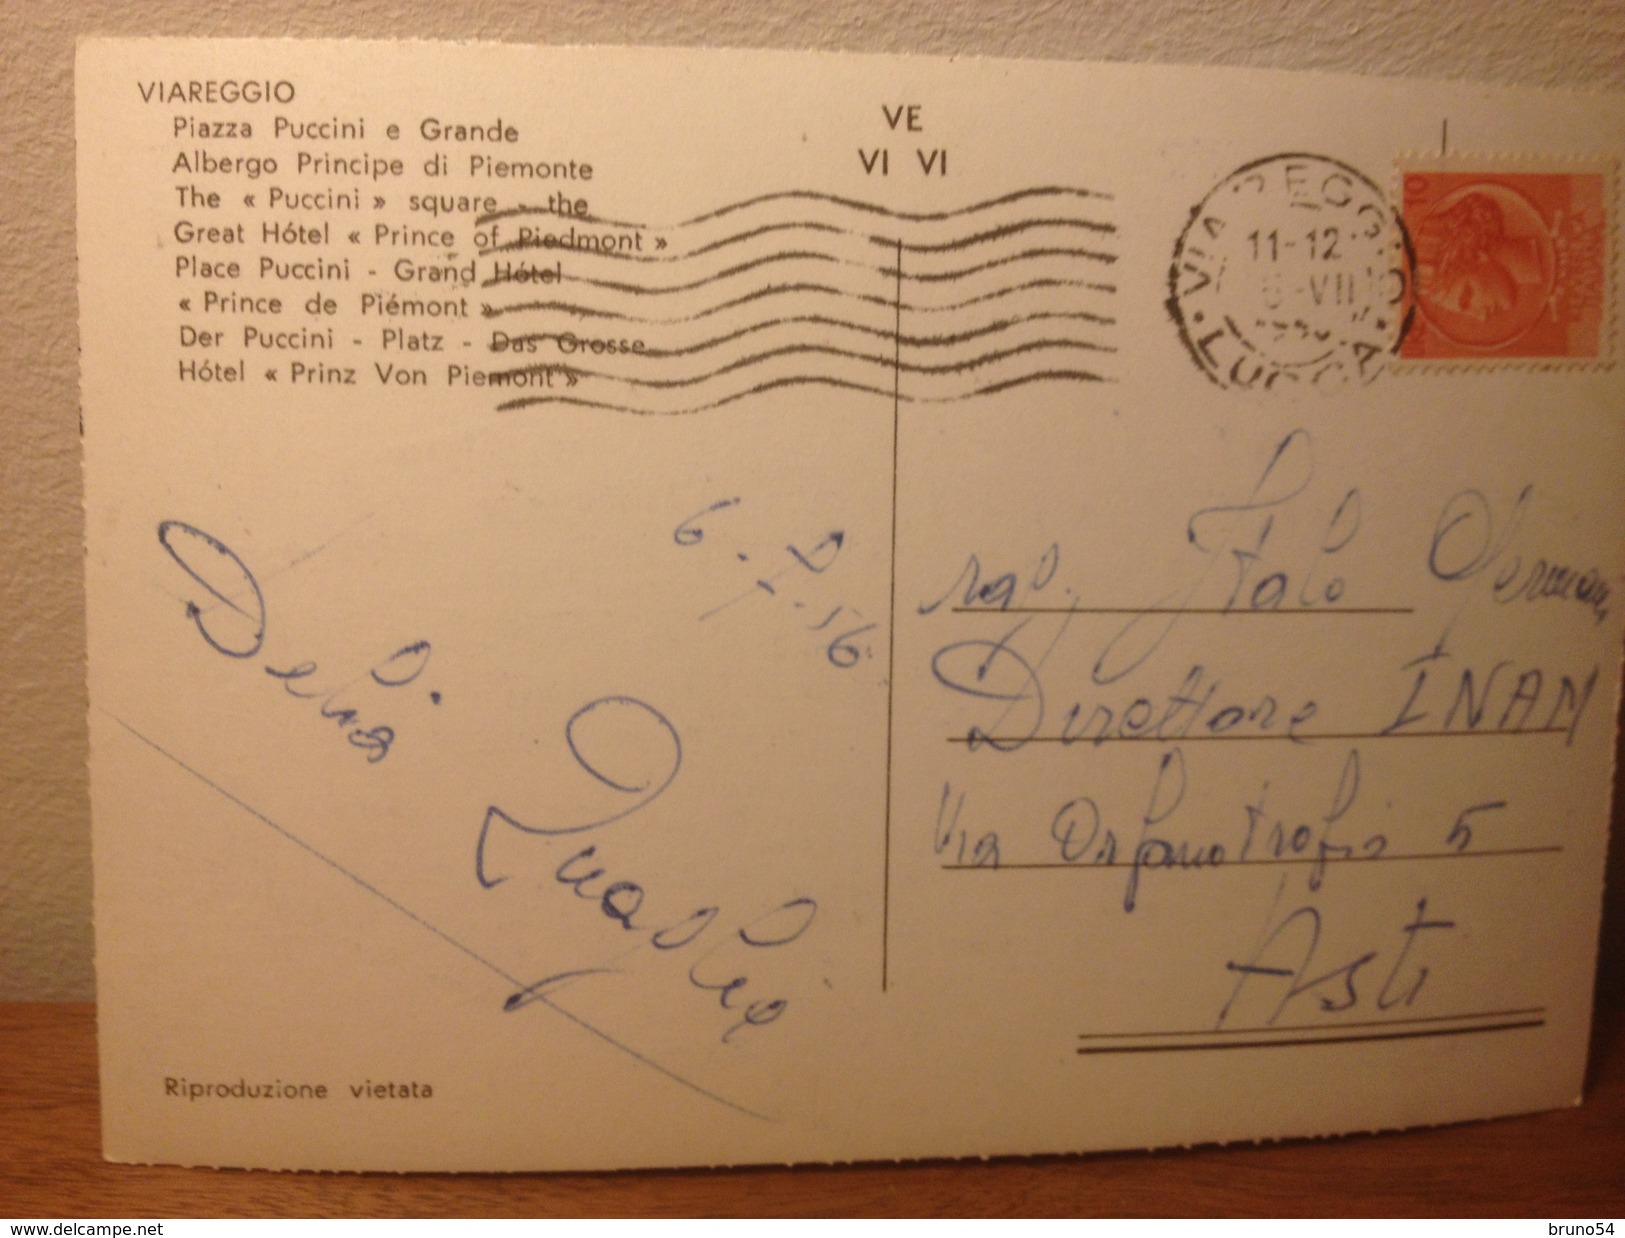 VIAREGGIO
Piazza Puccini e Grande
Albergo Principe di Piemonte
The « Puccini » square - the
Great Hótel « Prince of Piedmont »
Place Puccini - Grand Hótel
« Prince de Piémont »
Der Puccini - Platz - Das Grosse
Hótel « Prinz Von Piemont »
VE
VI VI
VIAREGGIO
11-12
6-VII
LUCCA
10
6-7-56
Delia
Quaglia
rag. Italo
Direttore INAM
Via Orfanotrofio 5
Asti
Riproduzione vietata
www.delcampe.net
bruno54